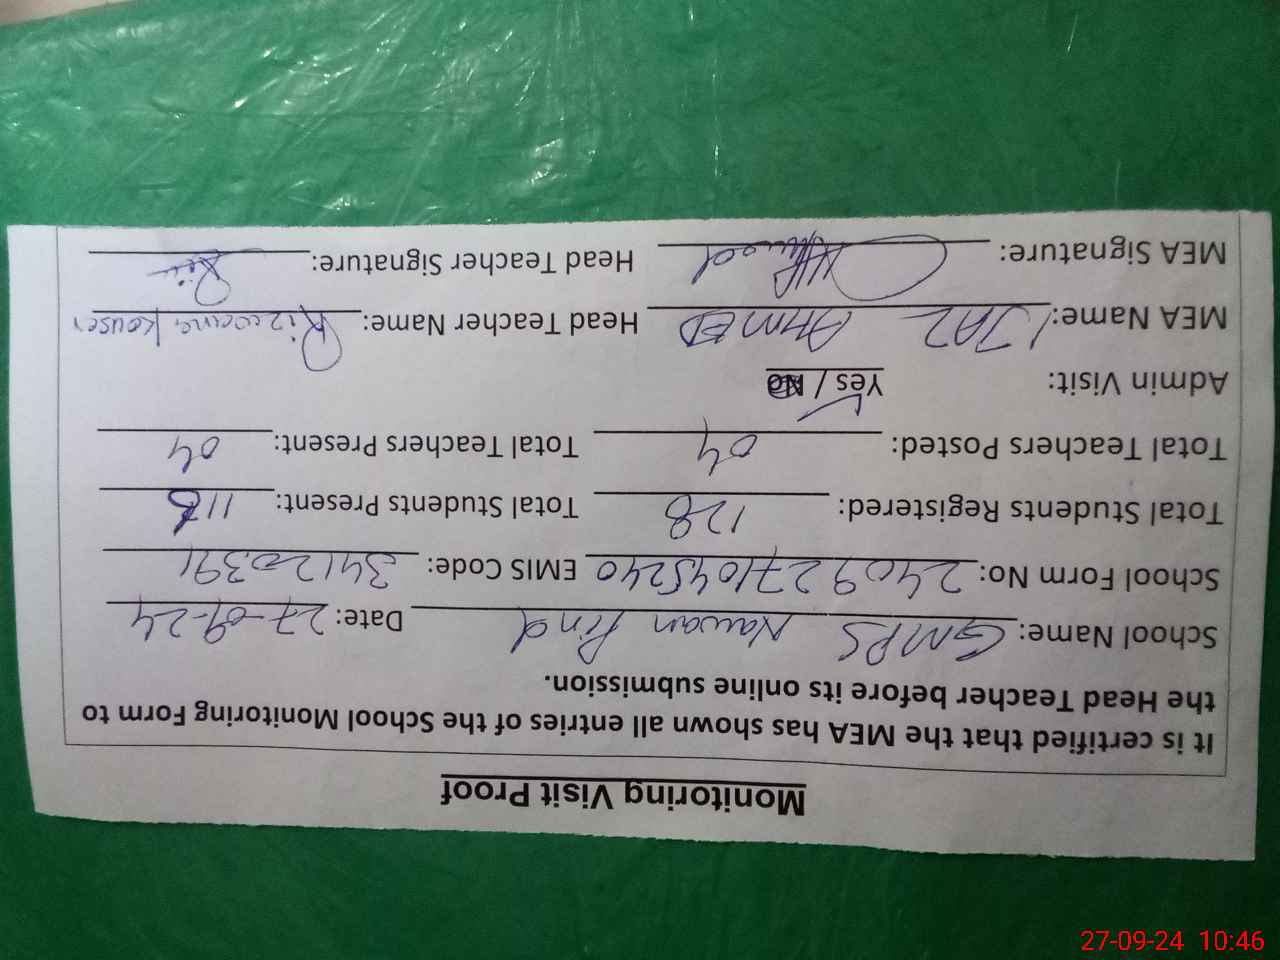 Monitoring Visit Proof
It is certified that the MEA has shown all entries of the School Monitoring Form to
the Head Teacher before its online submission.
School Name: GMPS Nawan Pind Date: 27-09-24
School Form No: 2409271045240 EMIS Code: 34120391
Total Students Registered: 128 Total Students Present:
Total Teachers Posted: 04 Total Teachers Present: 04
Admin Visit: Yes / No
MEA Name: IJAZ AHMED Head Teacher Name: Rizwana Kouser
MEA Signature: Head Teacher Signature:
27-09-24 10:46